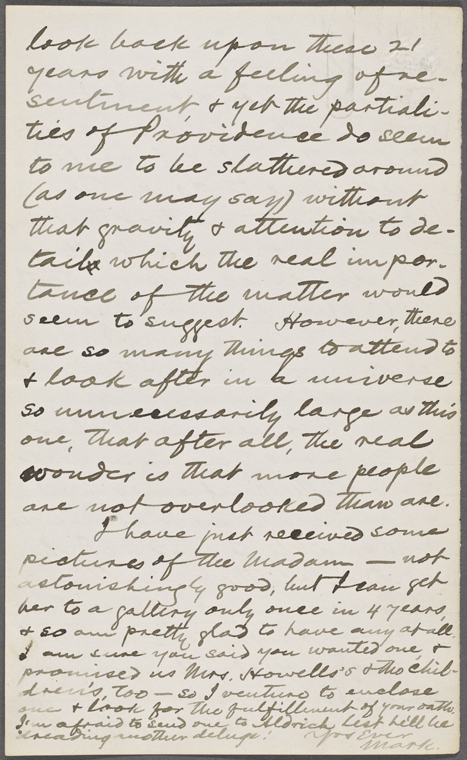 look back upon these 21
years with a feeling of re-
sentment, & yet the partiali-
ties of Providence do seem
to me to be slathered around
(as one may say) without
that gravity & attention to de-
tail which the real impor-
tance of the matter would
seem to suggest. However, there
are so many things to attend to
& look after in a universe
so unnecessarily large as this
one, that after all, the real
wonder is that more people
are not overlooked than are.
I have just received some
pictures of the Madam — not
astonishingly good, but I can get
her to a gallery only once in 4 years,
& so am pretty glad to have any at all.
I am sure you said you wanted one, &
promised us Mrs. Howells's & the chil-
dren's, too — so I venture to enclose
one & look for the fulfillment of your oath.
I'm afraid to send one to Aldrich, lest he'll be
dreading another deluge.
Yrs Ever
Mark.